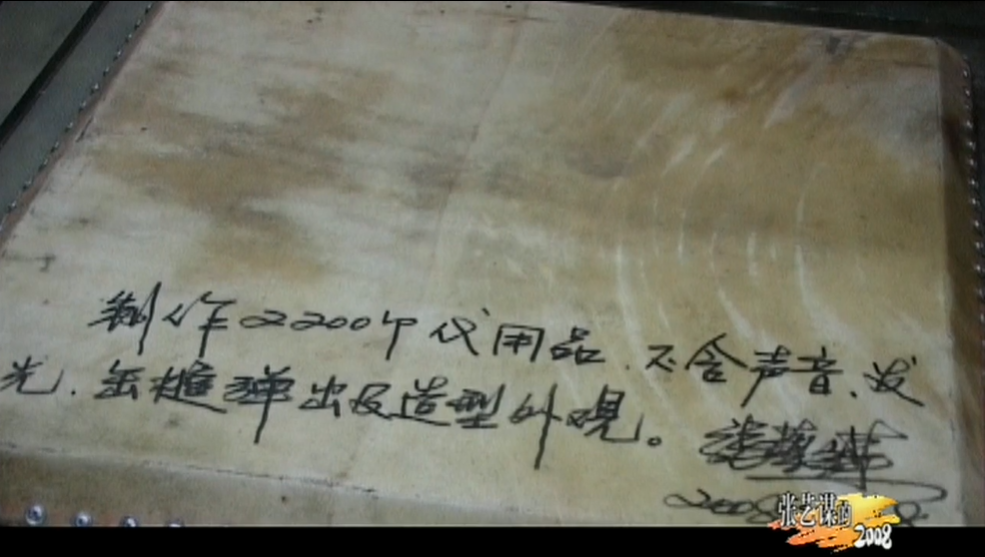 制作2200个代用品.不含声音、发
光.缶槌弹出及造型外观。
张艺谋
2008
张艺谋的
2008